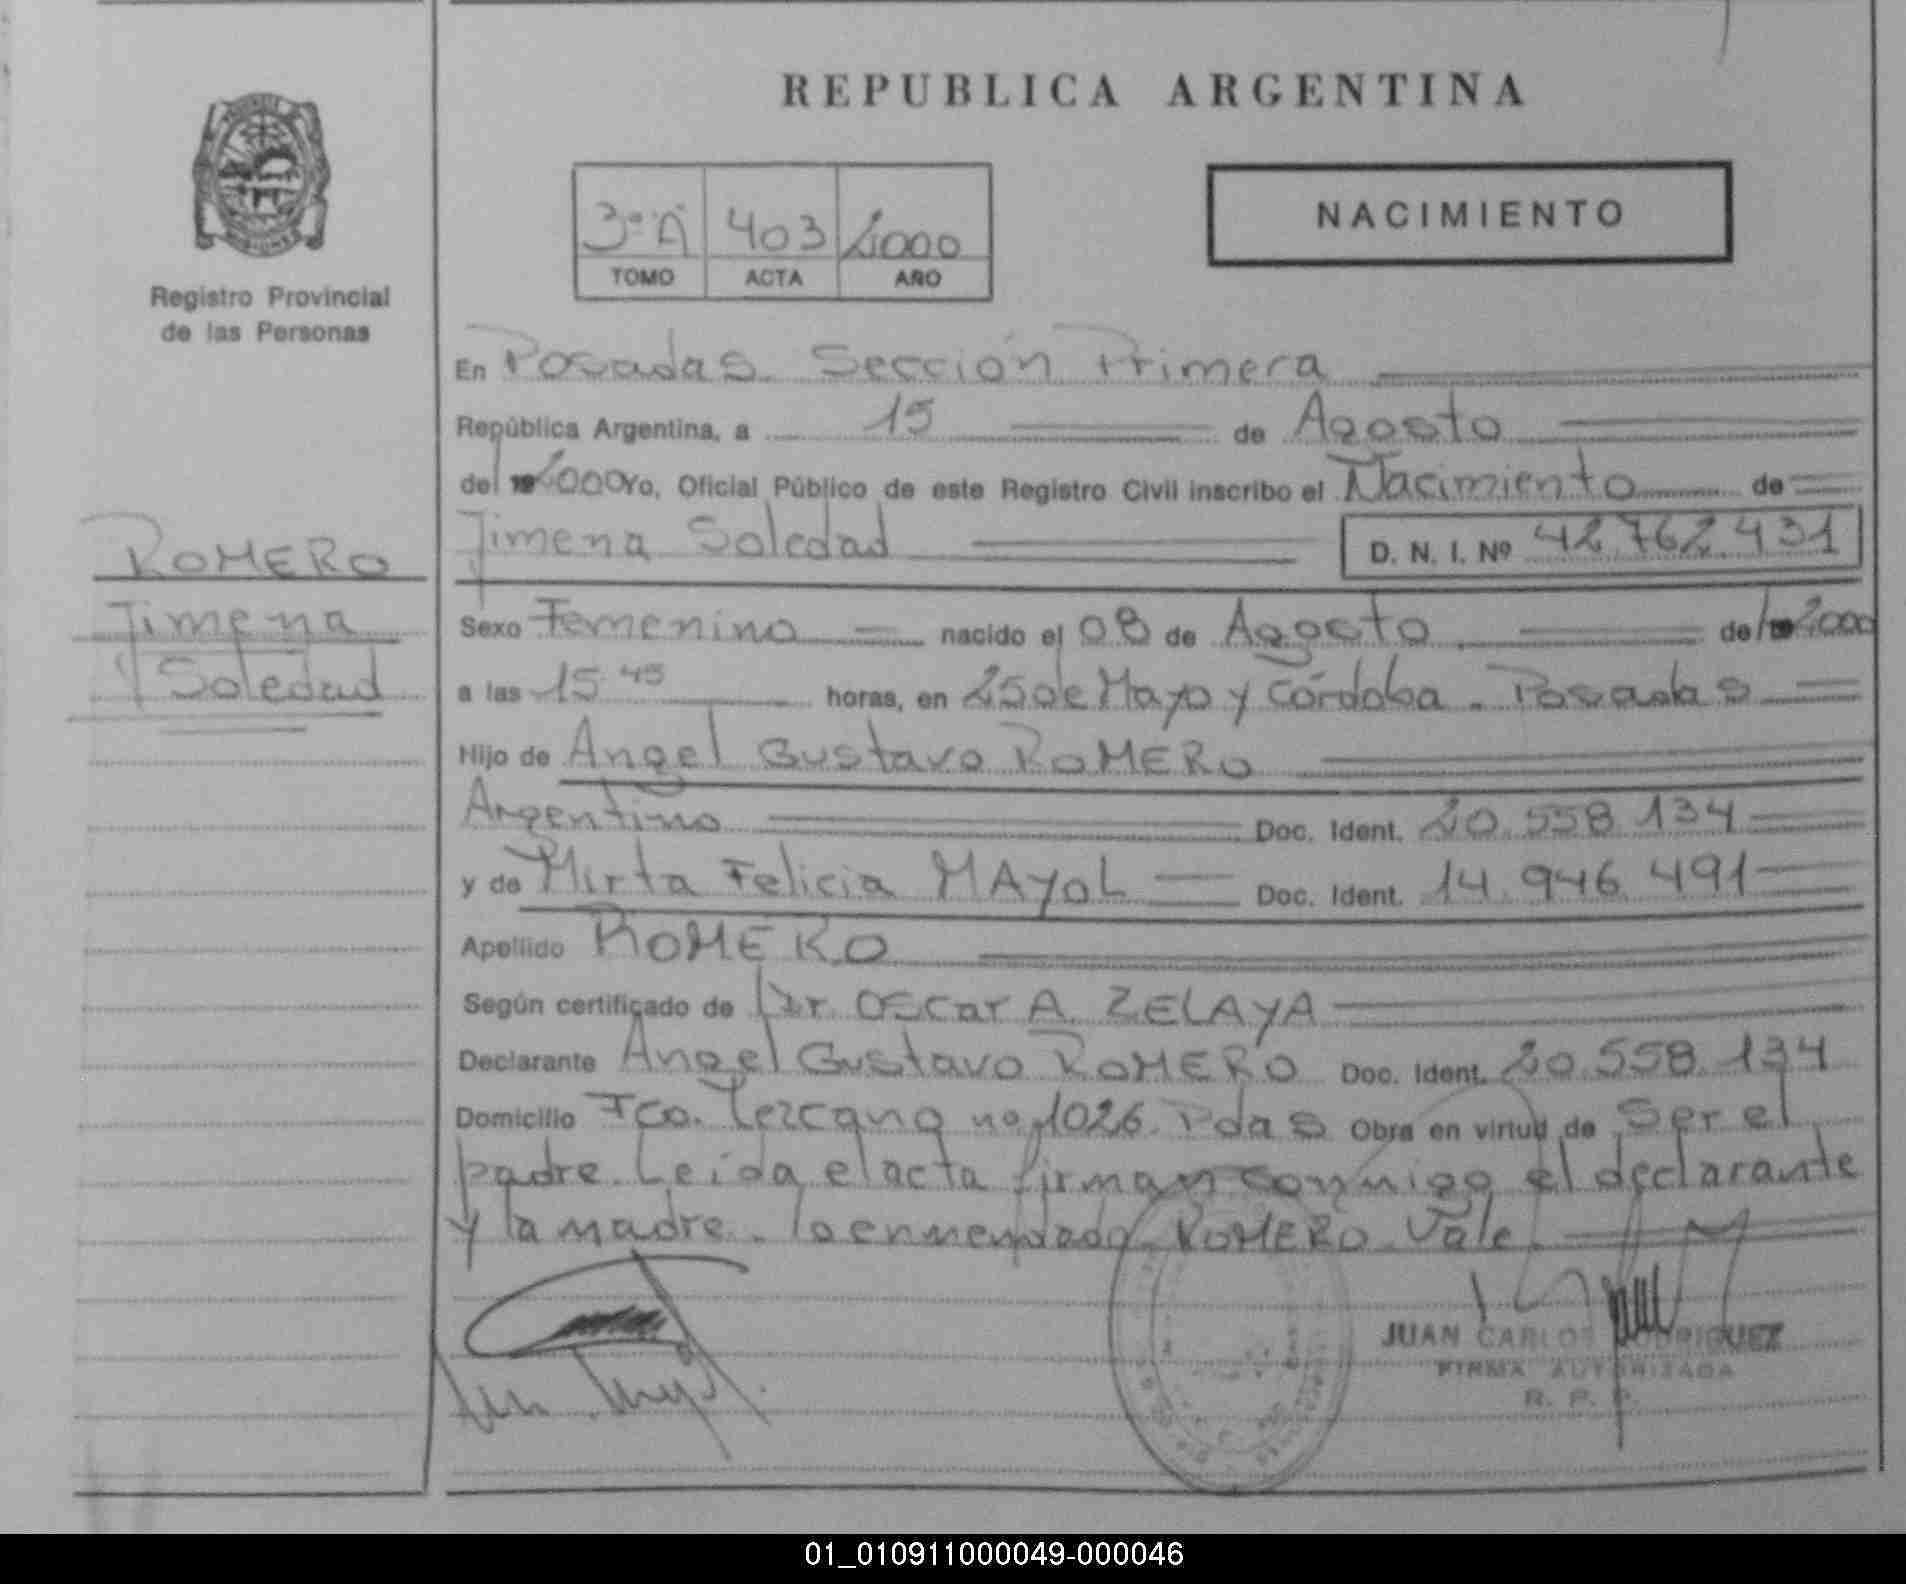 REPUBLICA ARGENTINA
3º A 403 2000
TOMO ACTA AÑO
NACIMIENTO
Registro Provincial
de las Personas
En Posadas Sección Primera
República Argentina, a 15 de Agosto
del 192000 Yo, Oficial Público de este Registro Civil inscribo el Nacimiento de
Jimena Soledad D. N. I. Nº 42762431
ROMERO
Jimena
Soledad
Sexo Femenino nacido el 08 de Agosto de 2000
a las 15 45 horas, en 25 de Mayo y Córdoba - Posadas
Hijo de Angel Gustavo ROMERO
Argentino Doc. Ident. 20.558.134
y de Mirta Felicia MAYOL Doc. Ident. 14.946.491
Apellido ROMERO
Según certificado de Dr. Oscar A. ZELAYA
Declarante Angel Gustavo ROMERO Doc. Ident. 20.558.134
Domicilio Fco. nº 1026. Pdas Obra en virtud de Ser el
padre. Leída el acta firman conmigo el declarante
y la madre. lo enmendado. ROMERO. Vale.
JUAN CARLOS RODRIGUEZ
FIRMA AUTORIZADA
R. P. P.
01_010911000049-000046